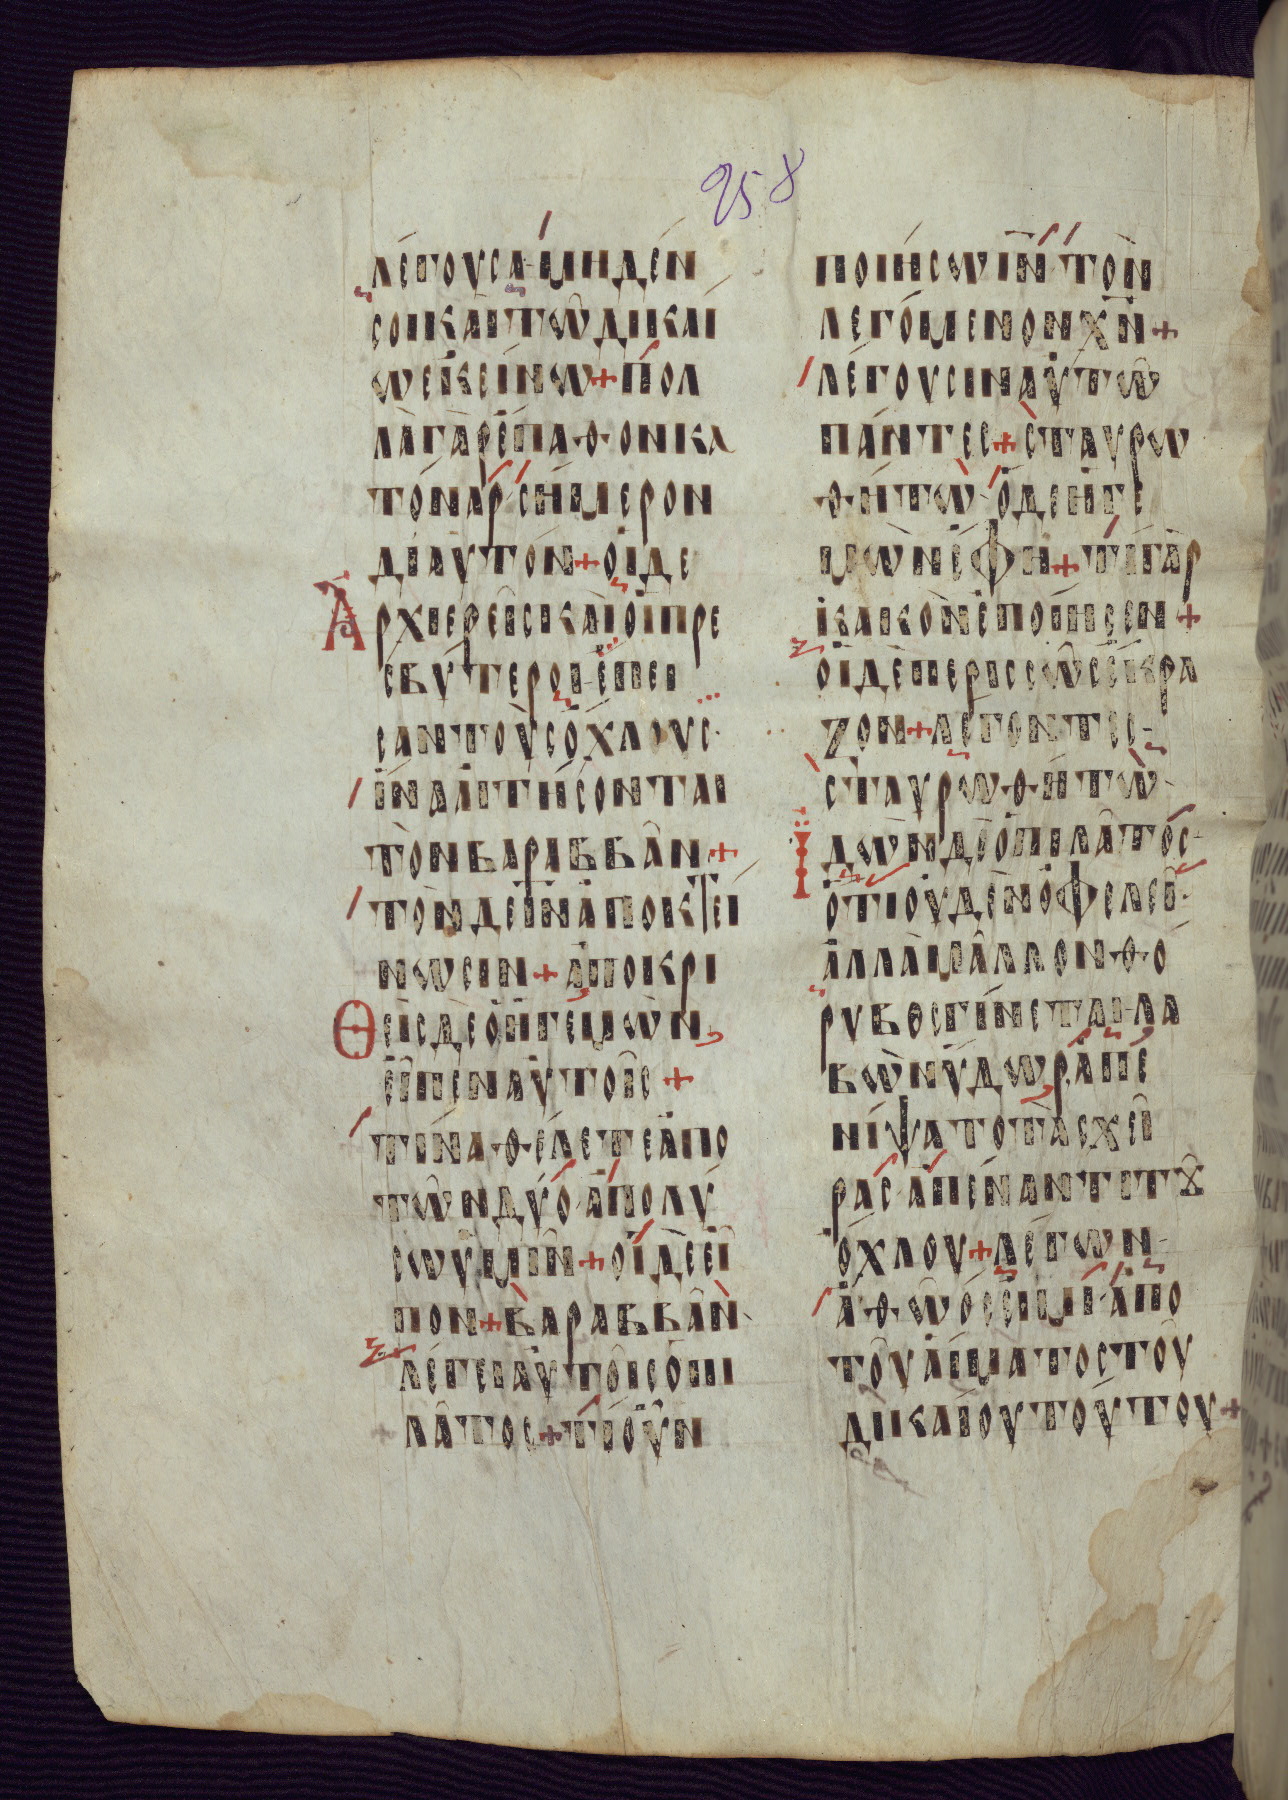 258
λέγουσα· μηδέν
σοι καὶ τῶ δικαί
ω ἐκείνω + πολ
λὰ γὰρ ἔπαθον κα
τόναρ σήμερον
δι αυτόν + οἱ δὲ
Ἀρχιερεῖς καὶ οἱ πρε
σβύτεροι ἔπει
σαν τοὺς ὄχλους·
ἵνα αἰτήσονται
τὸν βαραββᾶν +
τὸν δὲ ἰν̅ ἀποκτεί
νωσιν + ἀποκρι
Θεὶς δὲ ὁ ἡγεμὼν
εἶπεν αὐτοῖς +
τίνα θέλετε ἀπο
τῶν δύο ἀπολύ
σω ὑμῖν + οἱ δὲ εἶ
πον + βαραββᾶν·
λέγει αὐτοῖς ὁ πι
λᾶτος + τί οὖν
ποιήσω ἰν̅ τὸν
λεγόμενον χν̅ +
λέγουσιν αὐτῶ
πάντες + σταυρω
θήτω· ὁ δὲ ἡγε
μὼν ἔφη + τί γὰρ
κακὸν ἐποίησεν +
οἱ δὲ περισσῶς ἔκρα
ζον + λέγοντες·
σταυρωθήτω·
Ἰδὼν δὲ ὁ πιλᾶτος·
ὅτι οὐδὲν ὀφελεῖ·
ἀλλὰ μᾶλλον θό
ρυβος γίνεται· λα
βὼν ὕδωρ ἀπε
νίψατο τὰς χεῖ
ρας ἀπέναντι τοῦ
ὄχλου + λέγων·
ἀθῶός εἰμι ἀπο
τοῦ αἵματος τοῦ
δικαίου τούτου +